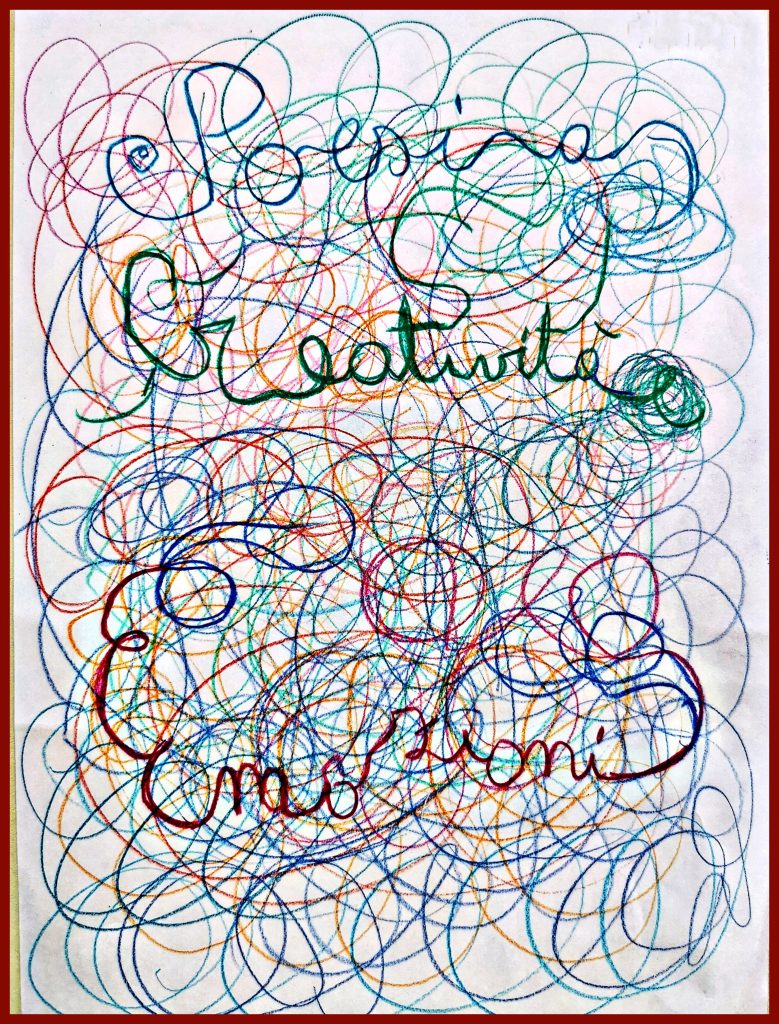 Poesia
Creatività
Emozioni